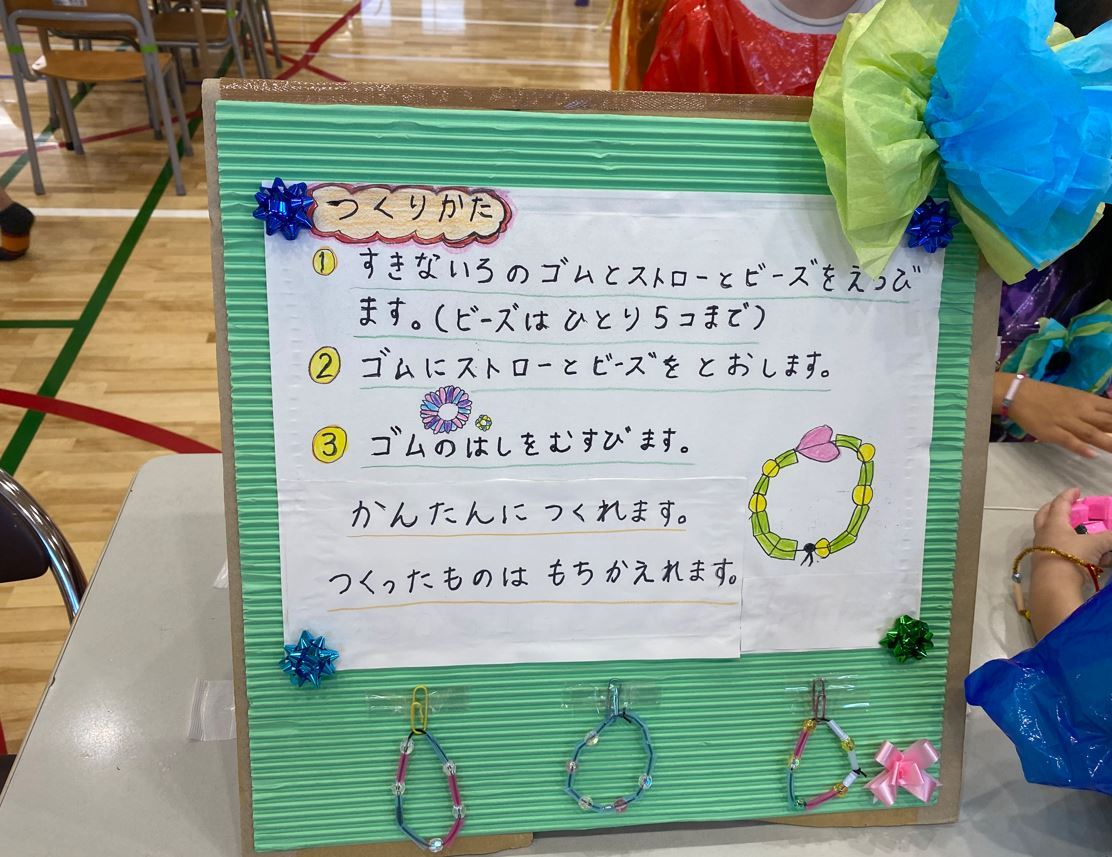 つくりかた
① すきないろのゴムとストローとビーズをえらび
ます。(ビーズは ひとり 5コまで)
② ゴムにストローとビーズを とおします。
③ ゴムのはしをむすびます。
かんたんに つくれます。
つくったものは もちかえれます。